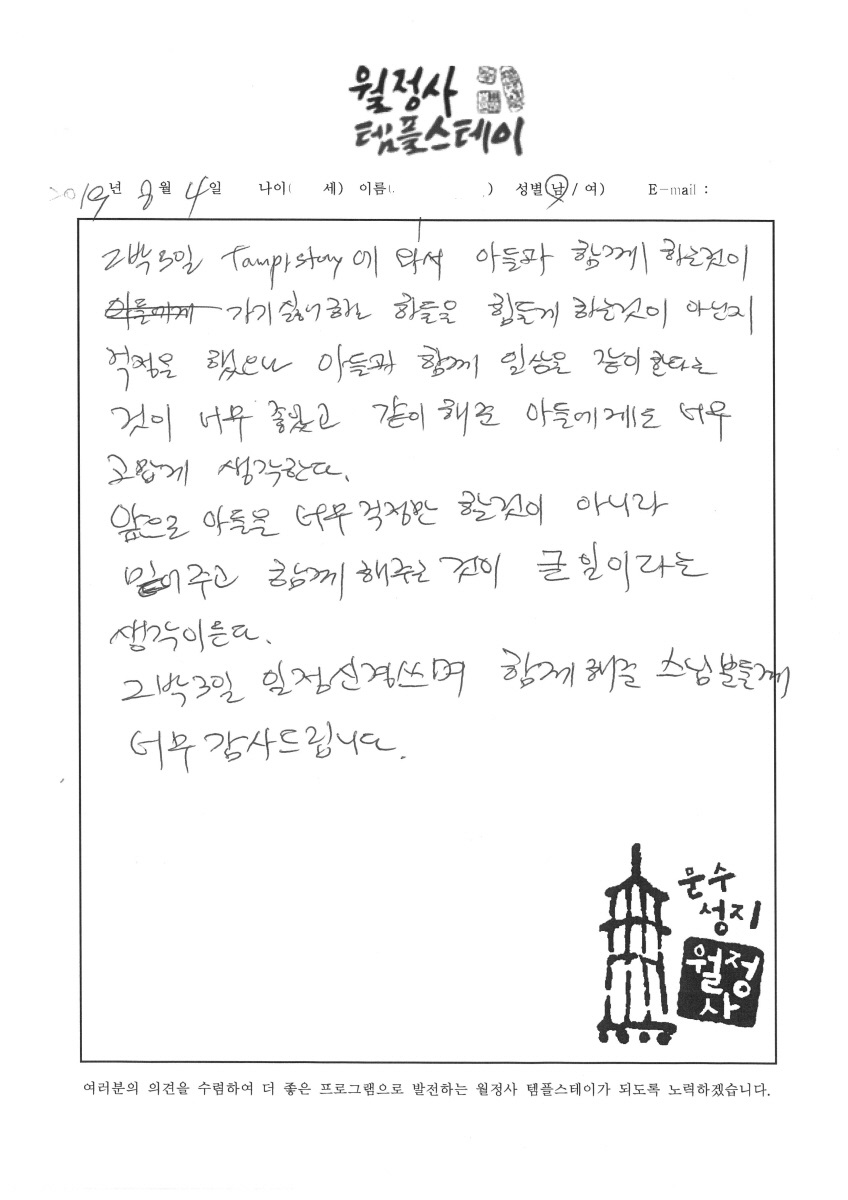 월정사
템플스테이
2019년 8월 4일 나이( 세) 이름( ) 성별(남/여) E-mail :
2박3일 Templstay에 와서 아들과 함께 하는것이
아들에게 가기싫어하는 아들을 힘들게 하는것이 아닌지
걱정을 했으나 아들과 함께 일상을 같이 한다는
것이 너무 좋았고 같이 해준 아들에게도 너무
고맙게 생각한다.
앞으로 아들을 너무 걱정만 할것이 아니라
믿어주고 함께 해주는 것이 큰 일이라는
생각이든다.
2박3일 일정신경쓰며 함께 해준 스님분들께
너무 감사드립니다.
문수
성지
월정
사
여러분의 의견을 수렴하여 더 좋은 프로그램으로 발전하는 월정사 템플스테이가 되도록 노력하겠습니다.